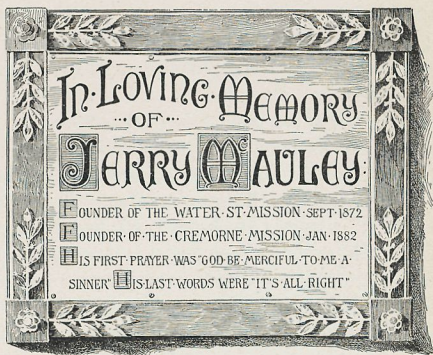 IN·LOVING·MEMORY
·OF·
JERRY McAULEY:
FOUNDER OF THE WATER·ST·MISSION·SEPT·1872
FOUNDER·OF·THE·CREMORNE·MISSION·JAN·1882
HIS FIRST·PRAYER·WAS "GOD·BE·MERCIFUL·TO·ME·A·
SINNER" HIS·LAST·WORDS WERE "IT'S·ALL·RIGHT"